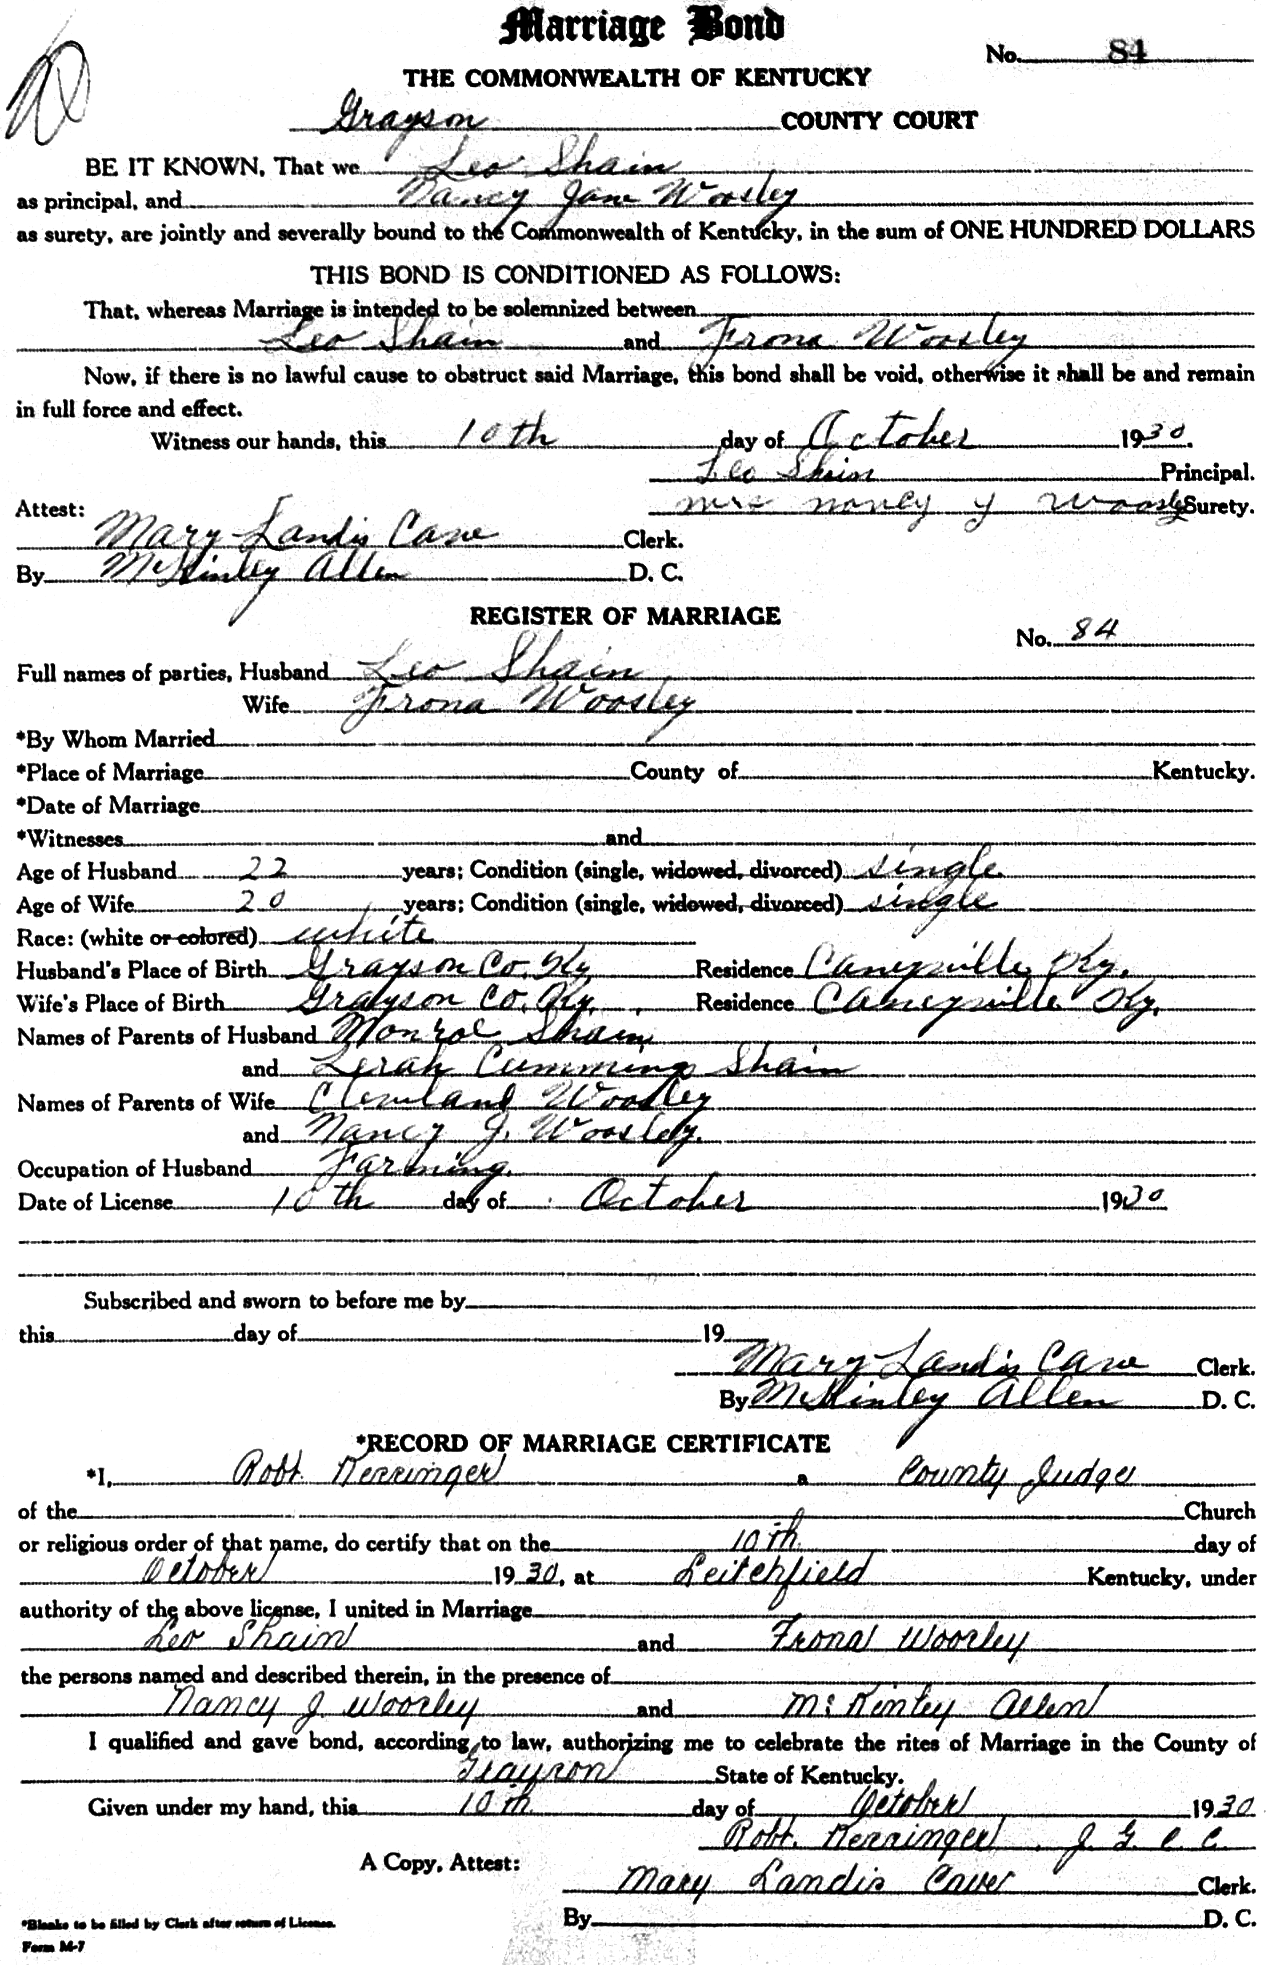 Marriage Bond
No. 84
THE COMMONWEALTH OF KENTUCKY
Grayson COUNTY COURT
BE IT KNOWN, That we Leo Shain
as principal, and Nancy Jane Woosley
as surety, are jointly and severally bound to the Commonwealth of Kentucky, in the sum of ONE HUNDRED DOLLARS
THIS BOND IS CONDITIONED AS FOLLOWS:
That, whereas Marriage is intended to be solemnized between
Leo Shain and Frona Woosley
Now, if there is no lawful cause to obstruct said Marriage, this bond shall be void, otherwise it shall be and remain
in full force and effect.
Witness our hands, this 10th day of October 1930.
Leo Shain Principal.
Mrs nancy y Woosly Surety.
Attest:
Mary Landis Cave Clerk.
By McKinley Allen D. C.
REGISTER OF MARRIAGE
No. 84
Full names of parties, Husband Leo Shain
Wife Frona Woosley
*By Whom Married
*Place of Marriage County of Kentucky.
*Date of Marriage
*Witnesses and
Age of Husband 22 years; Condition (single, widowed, divorced) single
Age of Wife 20 years; Condition (single, widowed, divorced) single
Race: (white or colored) white
Husband's Place of Birth Grayson Co. Ky. Residence Caneyville Ky.
Wife's Place of Birth Grayson Co. Ky. Residence Caneyville Ky.
Names of Parents of Husband Monroe Shain
and Cummings Shain
Names of Parents of Wife Cleveland Woosley
and Nancy J. Woosley.
Occupation of Husband Farming.
Date of License 10th day of October 1930
Subscribed and sworn to before me by
this day of 19
Mary Landis Cave Clerk.
By McKinley Allen D. C.
*RECORD OF MARRIAGE CERTIFICATE
*I, Robt. Kerringer a County Judge
of the Church
or religious order of that name, do certify that on the 10th day of
October 1930, at Leitchfield Kentucky, under
authority of the above license, I united in Marriage
Leo Shain and Frona Woosley
the persons named and described therein, in the presence of
Nancy J Woosley and McKinley Allen
I qualified and gave bond, according to law, authorizing me to celebrate the rites of Marriage in the County of
Grayson State of Kentucky.
Given under my hand, this 10th day of October 1930
Robt. Kerringer J G C C.
A Copy, Attest:
Mary Landis Cave Clerk.
By D. C.
*Blanks to be filled by Clerk after return of License.
Form M-7